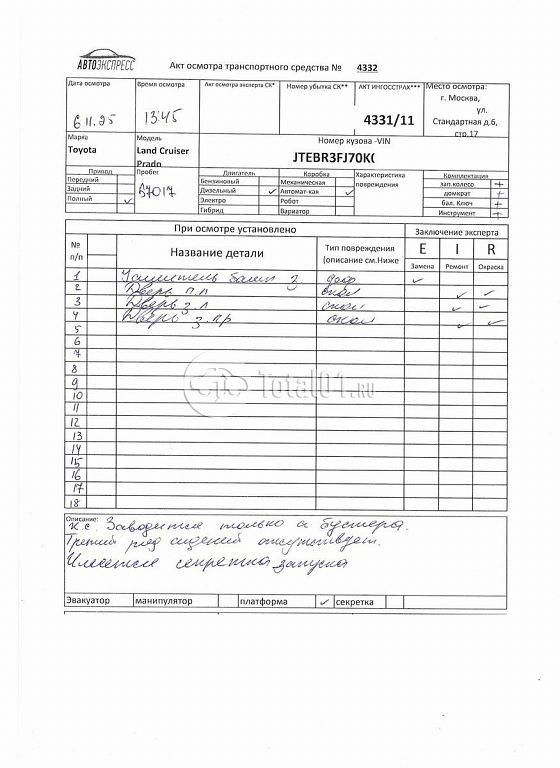 АВТОЭКСПРЕСС
Акт осмотра транспортного средства № 4332
Дата осмотра Время осмотра Акт осмотра эксперта СК* Номер убытка СК** АКТ ИНГОССТРАХ*** Место осмотра:
г. Москва,
6 11.25 13:45 4331/11 ул.
Стандартная д.6,
стр.17
Марка Модель Номер кузова -VIN
Toyota Land Cruiser Prado JTEBR3FJ70K(
Привод Пробег Двигатель Коробка Характеристика повреждения Комплектация
Передний 57017 Бензиновый Механическая зап.колесо +
Задний Дизельный ✓ Автомат-кая ✓ домкрат +
Полный ✓ Электро Робот бал. Ключ +
Гибрид Вариатор Инструмент +
При осмотре установлено Заключение эксперта
№ п/п Название детали Тип повреждения (описание см.Ниже E I R
Замена Ремонт Окраска
1 Усилитель бампп З. деф ✓
2 Дверь п.л скол ✓ ✓
3 Дверь з.л скол ✓ ✓
4 Дверь з.пр скол ✓ ✓
5
6
7
8
9
10
11
12
13
14
15
16
17
18
Total01.RU
Описание:
К.с. Заводится только с бустера.
Третий ряд сидений отсутствует.
Имеется секретка запуска
Эвакуатор манипулятор платформа ✓ секретка